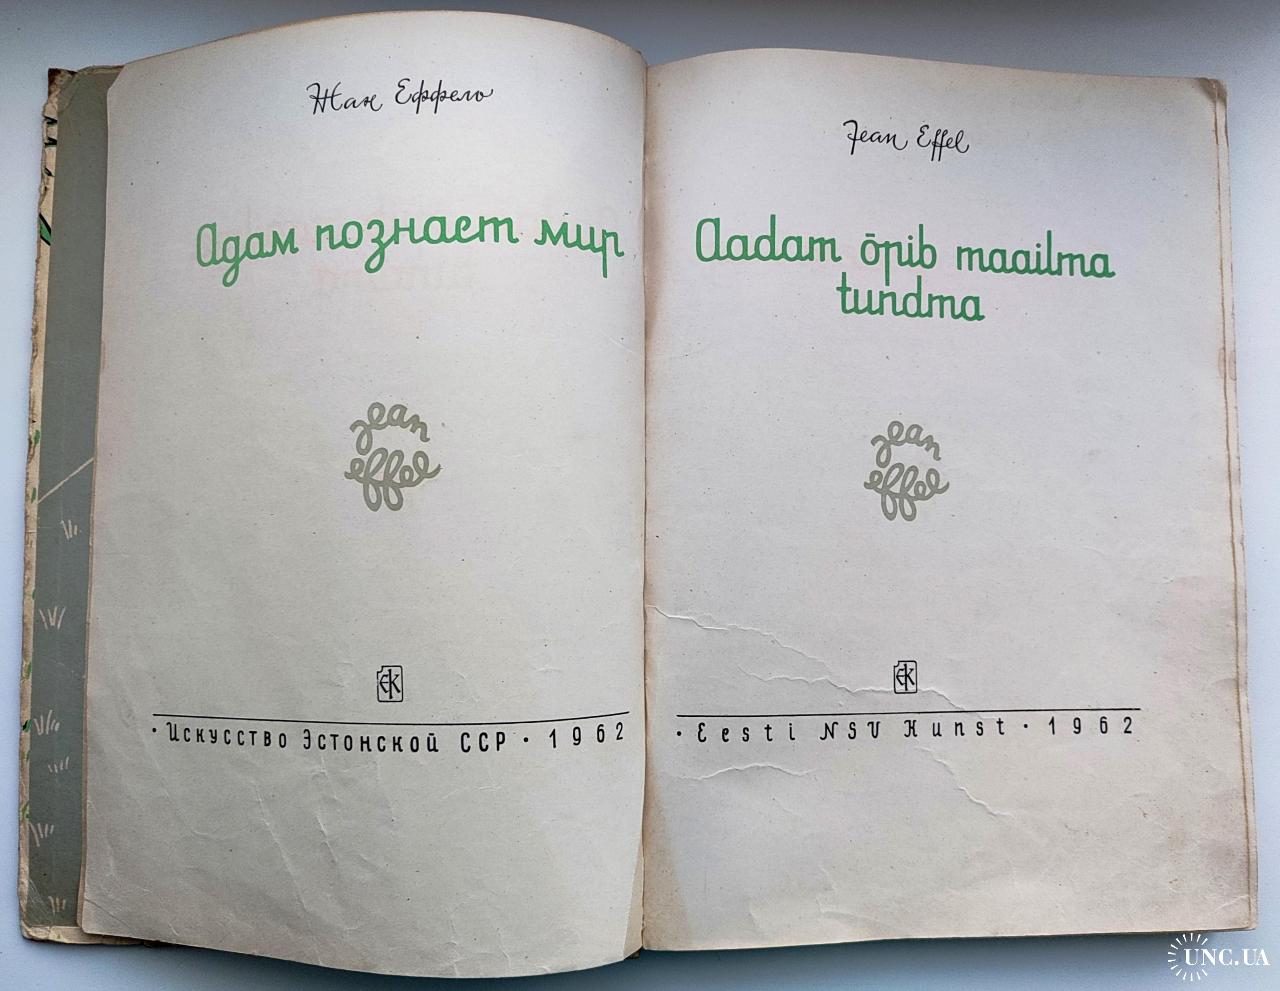 Жан Еффель
Адам познает мир
jean
effel
ЕК
· Искусство Эстонской ССР · 1962
Jean Effel
Aadam õpib maailma
tundma
jean
effel
EK
· Eesti NSV Kunst · 1962
UNC.UA